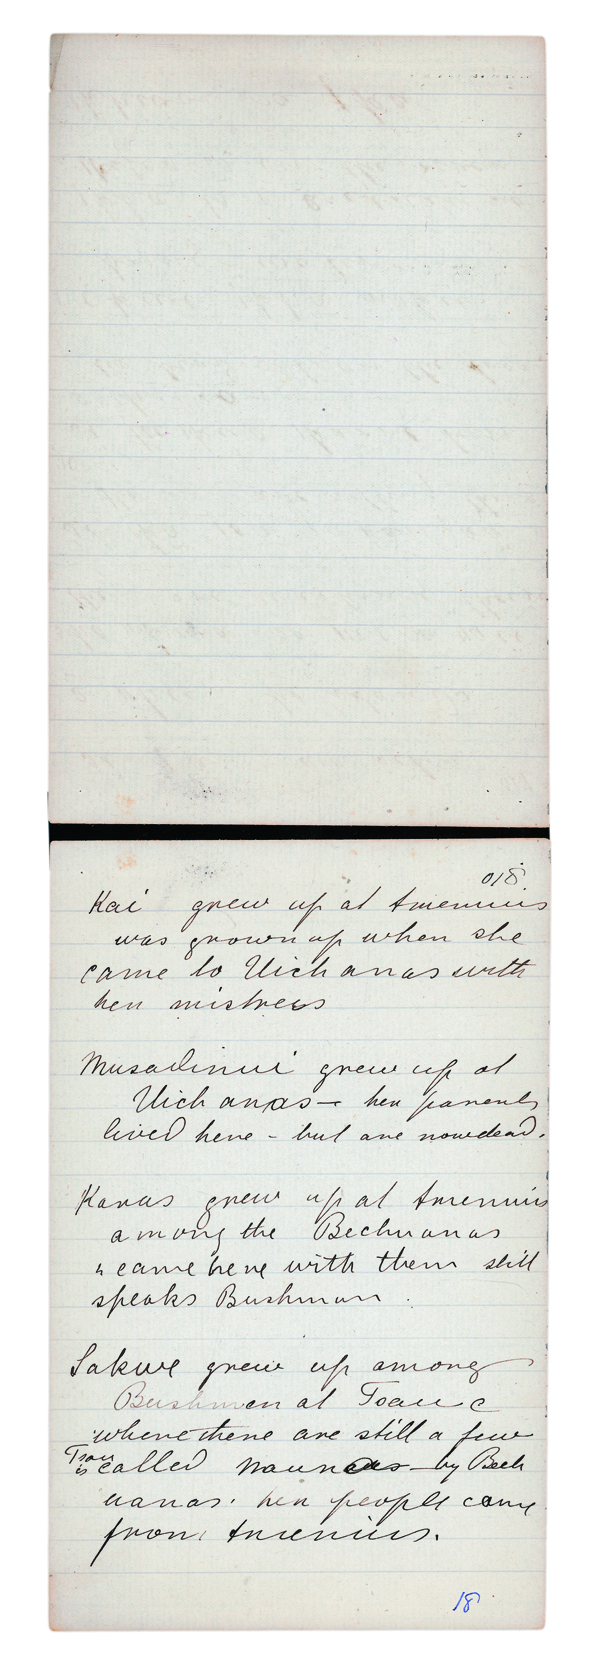 018.
Kai grew up at Amenuis
was grown up when she
came to Uichanas with
her mistress
Musadinui grew up at
Uichanas — her parents
lived here - but are now dead.
Karas grew up at Amenuis
among the Bechuanas
& came here with them still
speaks Bushman.
Sakwe grew up among
Bushmen at Tsau C
where there are still a few
Tsau is called Naunas — by Bech
uanas. her people came
from Amenuis.
18